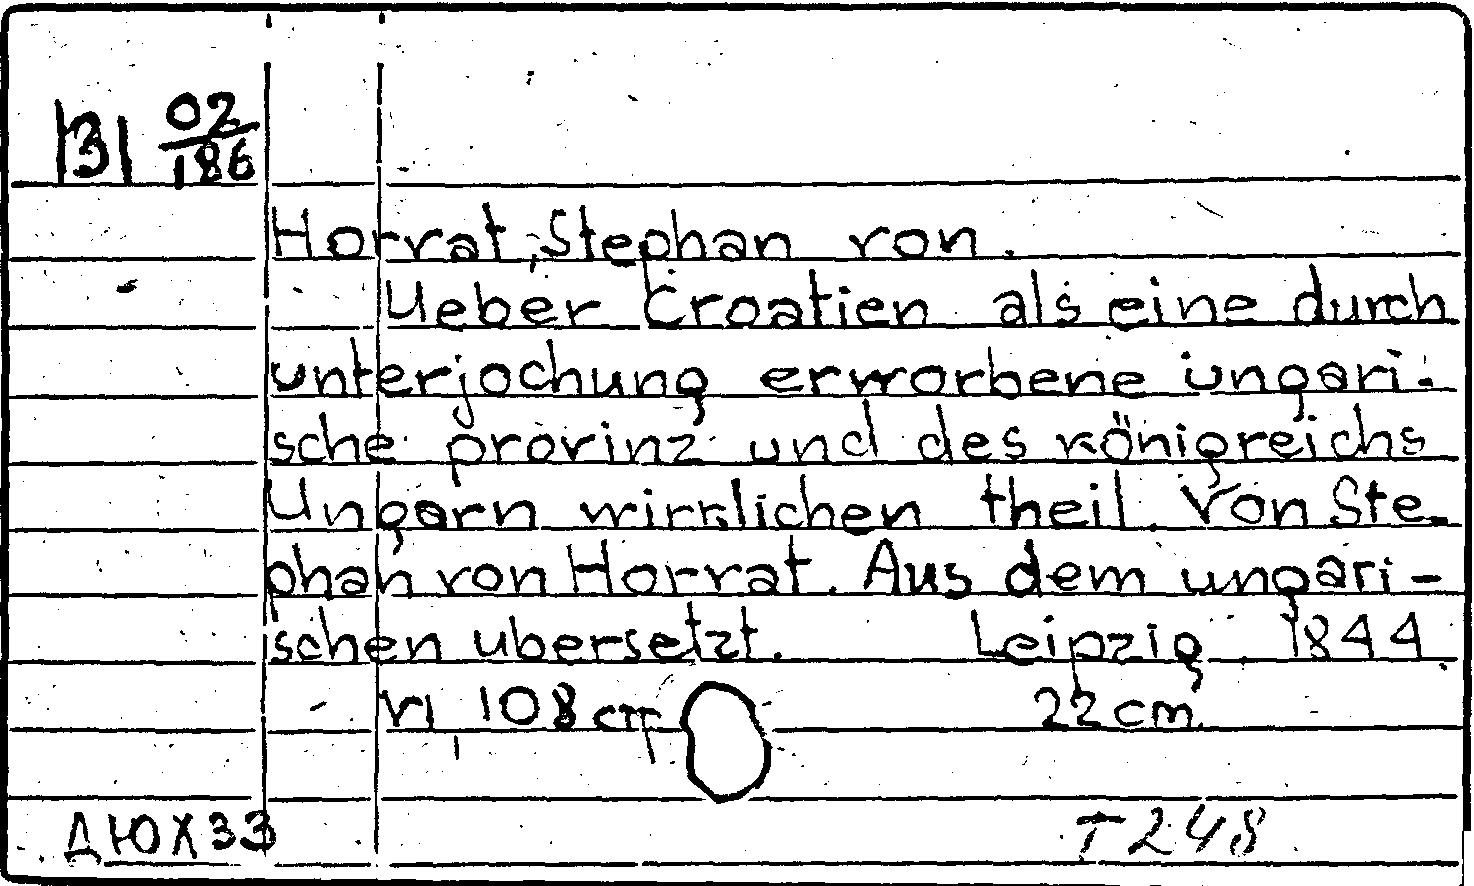 |3| 02/186
Horvat, Stephan von.
Ueber Croatien als eine durch
unterjochung erworbene ungari-
sche provinz und des königreichs
Ungarn wirklichen theil. Von Ste-
phan von Horvat. Aus dem ungari-
schen ubersetzt. Leipzig 1844
VI, 108 стр 22 cm.
ДЮХ33 T248